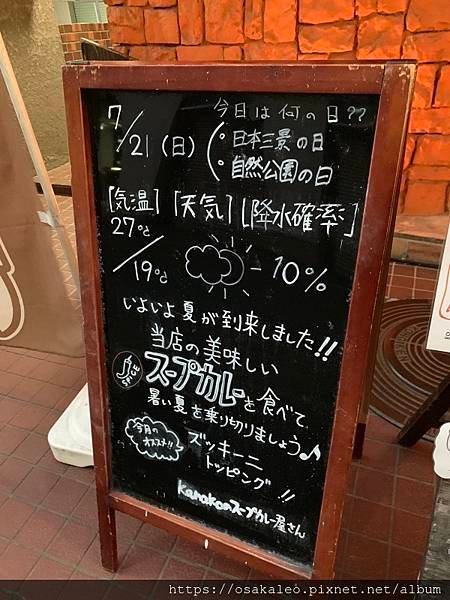 7/21(日)
今日は何の日??
・日本三景の日
・自然公園の日
[気温][天気][降水確率]
27℃/19℃
-10%
いよいよ夏が到来しました!!
当店の美味しい
SPICE
スープカレーを食べて
暑い夏を乗り切りましょう♪
今月のオススメ!!
ズッキーニ
トッピング!!
kanakoのスープカレー屋さん
https://osakaleo.pixnet.net/album